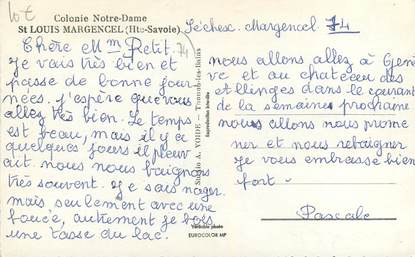 Colonie Notre-Dame
St LOUIS MARGENCEL (Hte-Savoie)
Séchex. Margencel 74
Chère Mm Petit.
Je vais très bien et
passe de bonne jour
nées. J'espère que vous
allez très bien. Le temps
est beau, mais il y a
quelques jours il pleuv
ait nous nous baignons
très souvent. Je sais nager
mais seulement avec une
bouée, autrement je bois
une tasse du lac.
Studio A. VOIDEY - Thonon-les-Bains
Reproduction interdite
Véritable photo
EUROCOLOR MP
nous allons allez à Genè
ve et au chateau des
allinges dans le courant
de la semaine prochaine
nous allons nous prome
ner et nous rebaigner
Je vous embrasse bien
fort -
Pascale